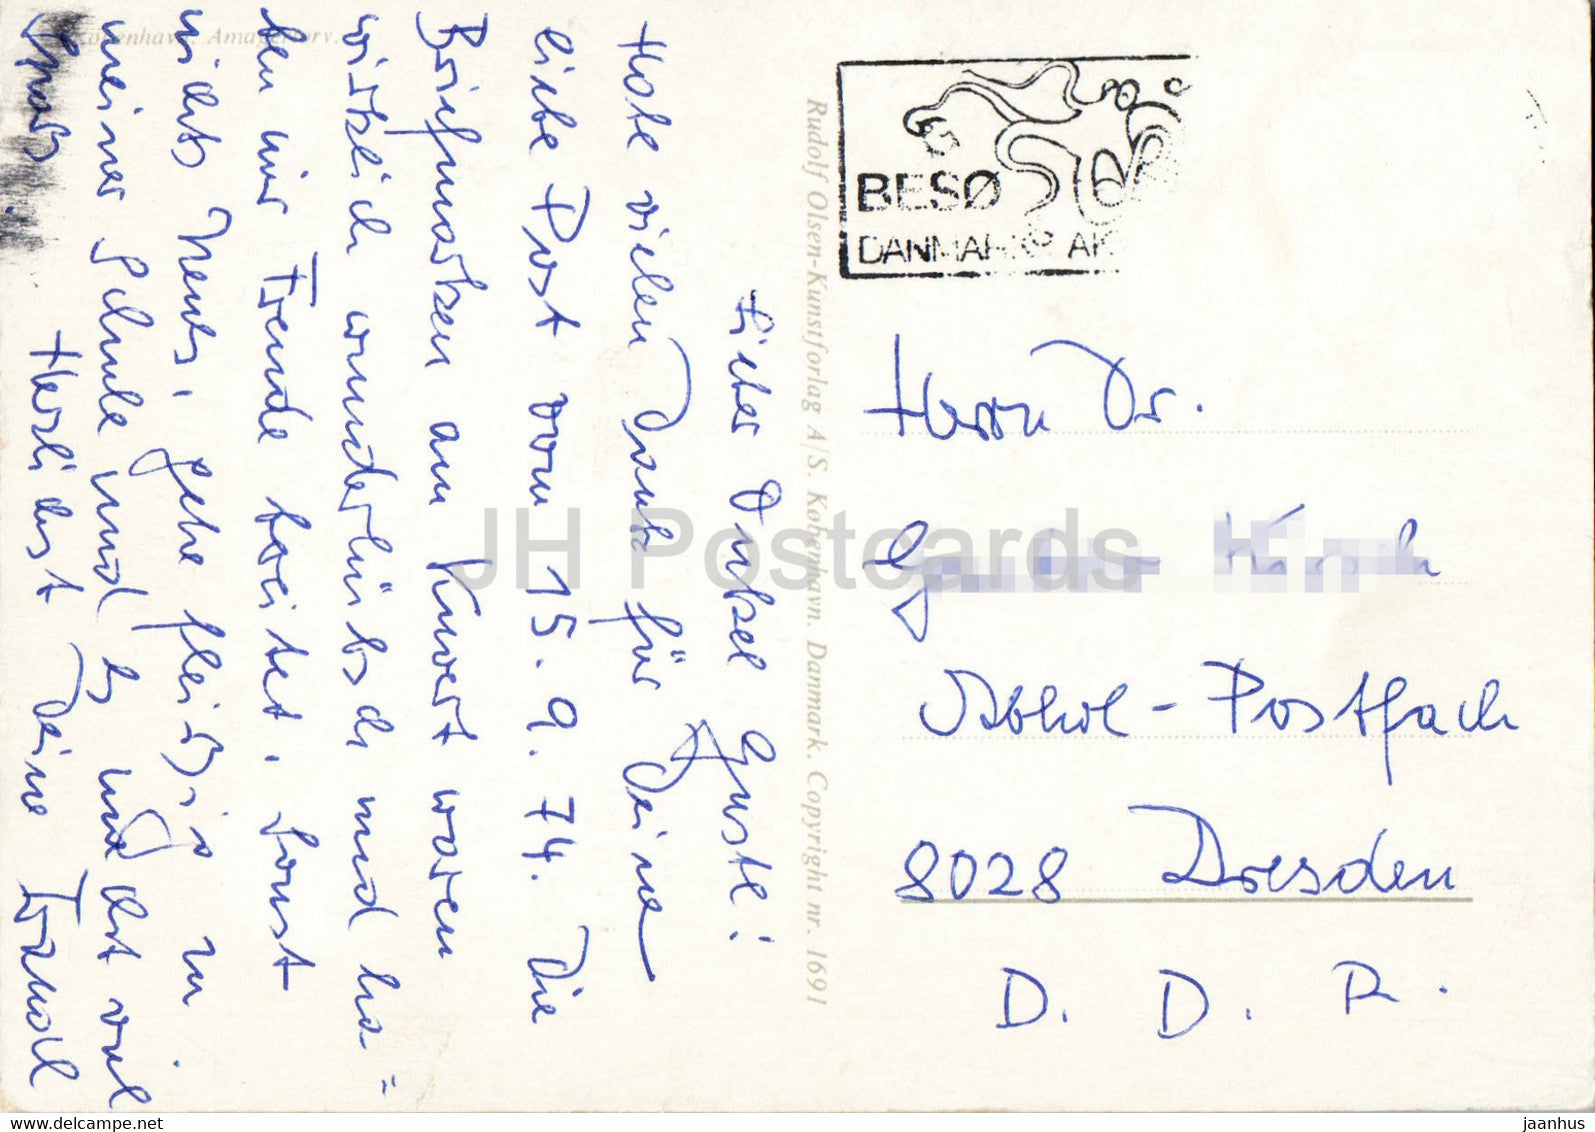 København. Amagertorv.
Lieber Onkel Guste!
Habe vielen Dank für Deine
liebe Post vom 15.9.74. Die
Briefmarken am Kuvert waren
wirklich wunderhübsch und ha=
ben mir Freude bereitet. Sonst
nichts Neues, gehe fleißig zu
meiner Schule und es macht viel
Spass.
Herzlichst Deine
Rudolf Olsen-Kunstforlag A/S. København. Danmark. Copyright nr. 1691
BESØ
DANMARKS AK
Herrn Dr.
Abhol-Postfach
8028 Dresden
D. D. R.
JH Postcards
www.delcampe.net
jaanhus